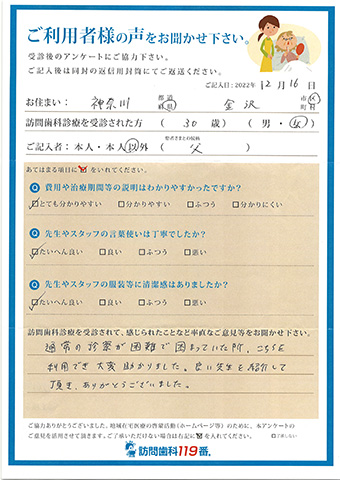 ご利用者様の声をお聞かせ下さい。
受診後のアンケートにご協力下さい。
ご記入後は同封の返信用封筒にてご返送ください。
ご記入日：2022年 12月 16日
お住まい： 神奈川 都道府県 金沢 市区町村
訪問歯科診療を受診された方 （ 30 歳） （ 男・女 ）
患者さまとの続柄
ご記入者：本人・本人以外 （ 父 ）
あてはまる項目に☑を入れてください。
Q 費用や治療期間等の説明はわかりやすかったですか？
☑とても分かりやすい □分かりやすい □ふつう □分かりにくい
Q 先生やスタッフの言葉使いは丁寧でしたか？
☑たいへん良い □良い □ふつう □悪い
Q 先生やスタッフの服装等に清潔感はありましたか？
☑たいへん良い □良い □ふつう □悪い
訪問歯科診療を受診されて、感じられたことなど率直なご意見等をお聞かせ下さい。
通常の診察が困難で困まっていた所、こちらを
利用でき大変助かりました。良い先生を紹介して
頂き、ありがとうございました。
ご協力ありがとうございました。地域在宅医療の啓蒙活動（ホームページ等）のために、本アンケートの
ご意見を活用させて頂きます。ご了承いただけない場合は右記に☑を入れてください。 □了承しない
訪問歯科119番®